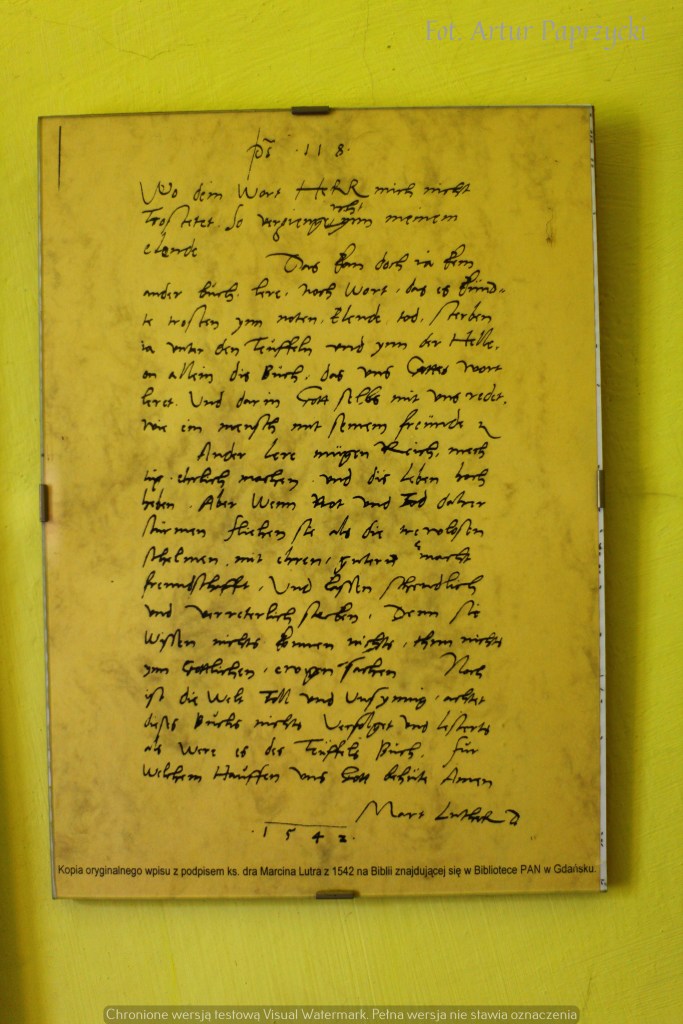 Fot. Artur Paprzycki
ps .118.
Wo dein Wort HeRR mich nicht
Trostetet. So vergienge ich ynn meinem
elende
Das kan doch ia kein
ander buch, lere, noch Wort, das es kund-
te trosten ynn noten, Elende tod, sterben
ia unter den Teuffeln und ynn der Helle,
on allein dis Buch, das uns Gottes wort
leret. Und darin Gott selbs mit uns redet,
wie ein mensch mit seinem freunde
Ander lere mugen Reich, mech
tig, ehrlich machen, und dis leben hoch
heben. Aber Wenn Not und Tod daher
sturmen fliehen sie als die
schelmen, mit ehren, guter, macht
freundschafft, Und lassen schendlich
und verreterlich stecken, Denn sie
Wissen nichts konnen nichts, thun nichts
ynn Gottlichen, sachen Noch
ist die Welt Toll und Unsynnig, achtet
dises Buchs nichts Verfolget und lesterts
als Were es des Teuffels Buch, fur
Welchem Hauffen uns Gott behute Amen
Mart LutheR D
.1542.
Kopia oryginalnego wpisu z podpisem ks. dra Marcina Lutra z 1542 na Biblii znajdującej się w Bibliotece PAN w Gdańsku.
Chronione wersją testową Visual Watermark. Pełna wersja nie stawia oznaczenia